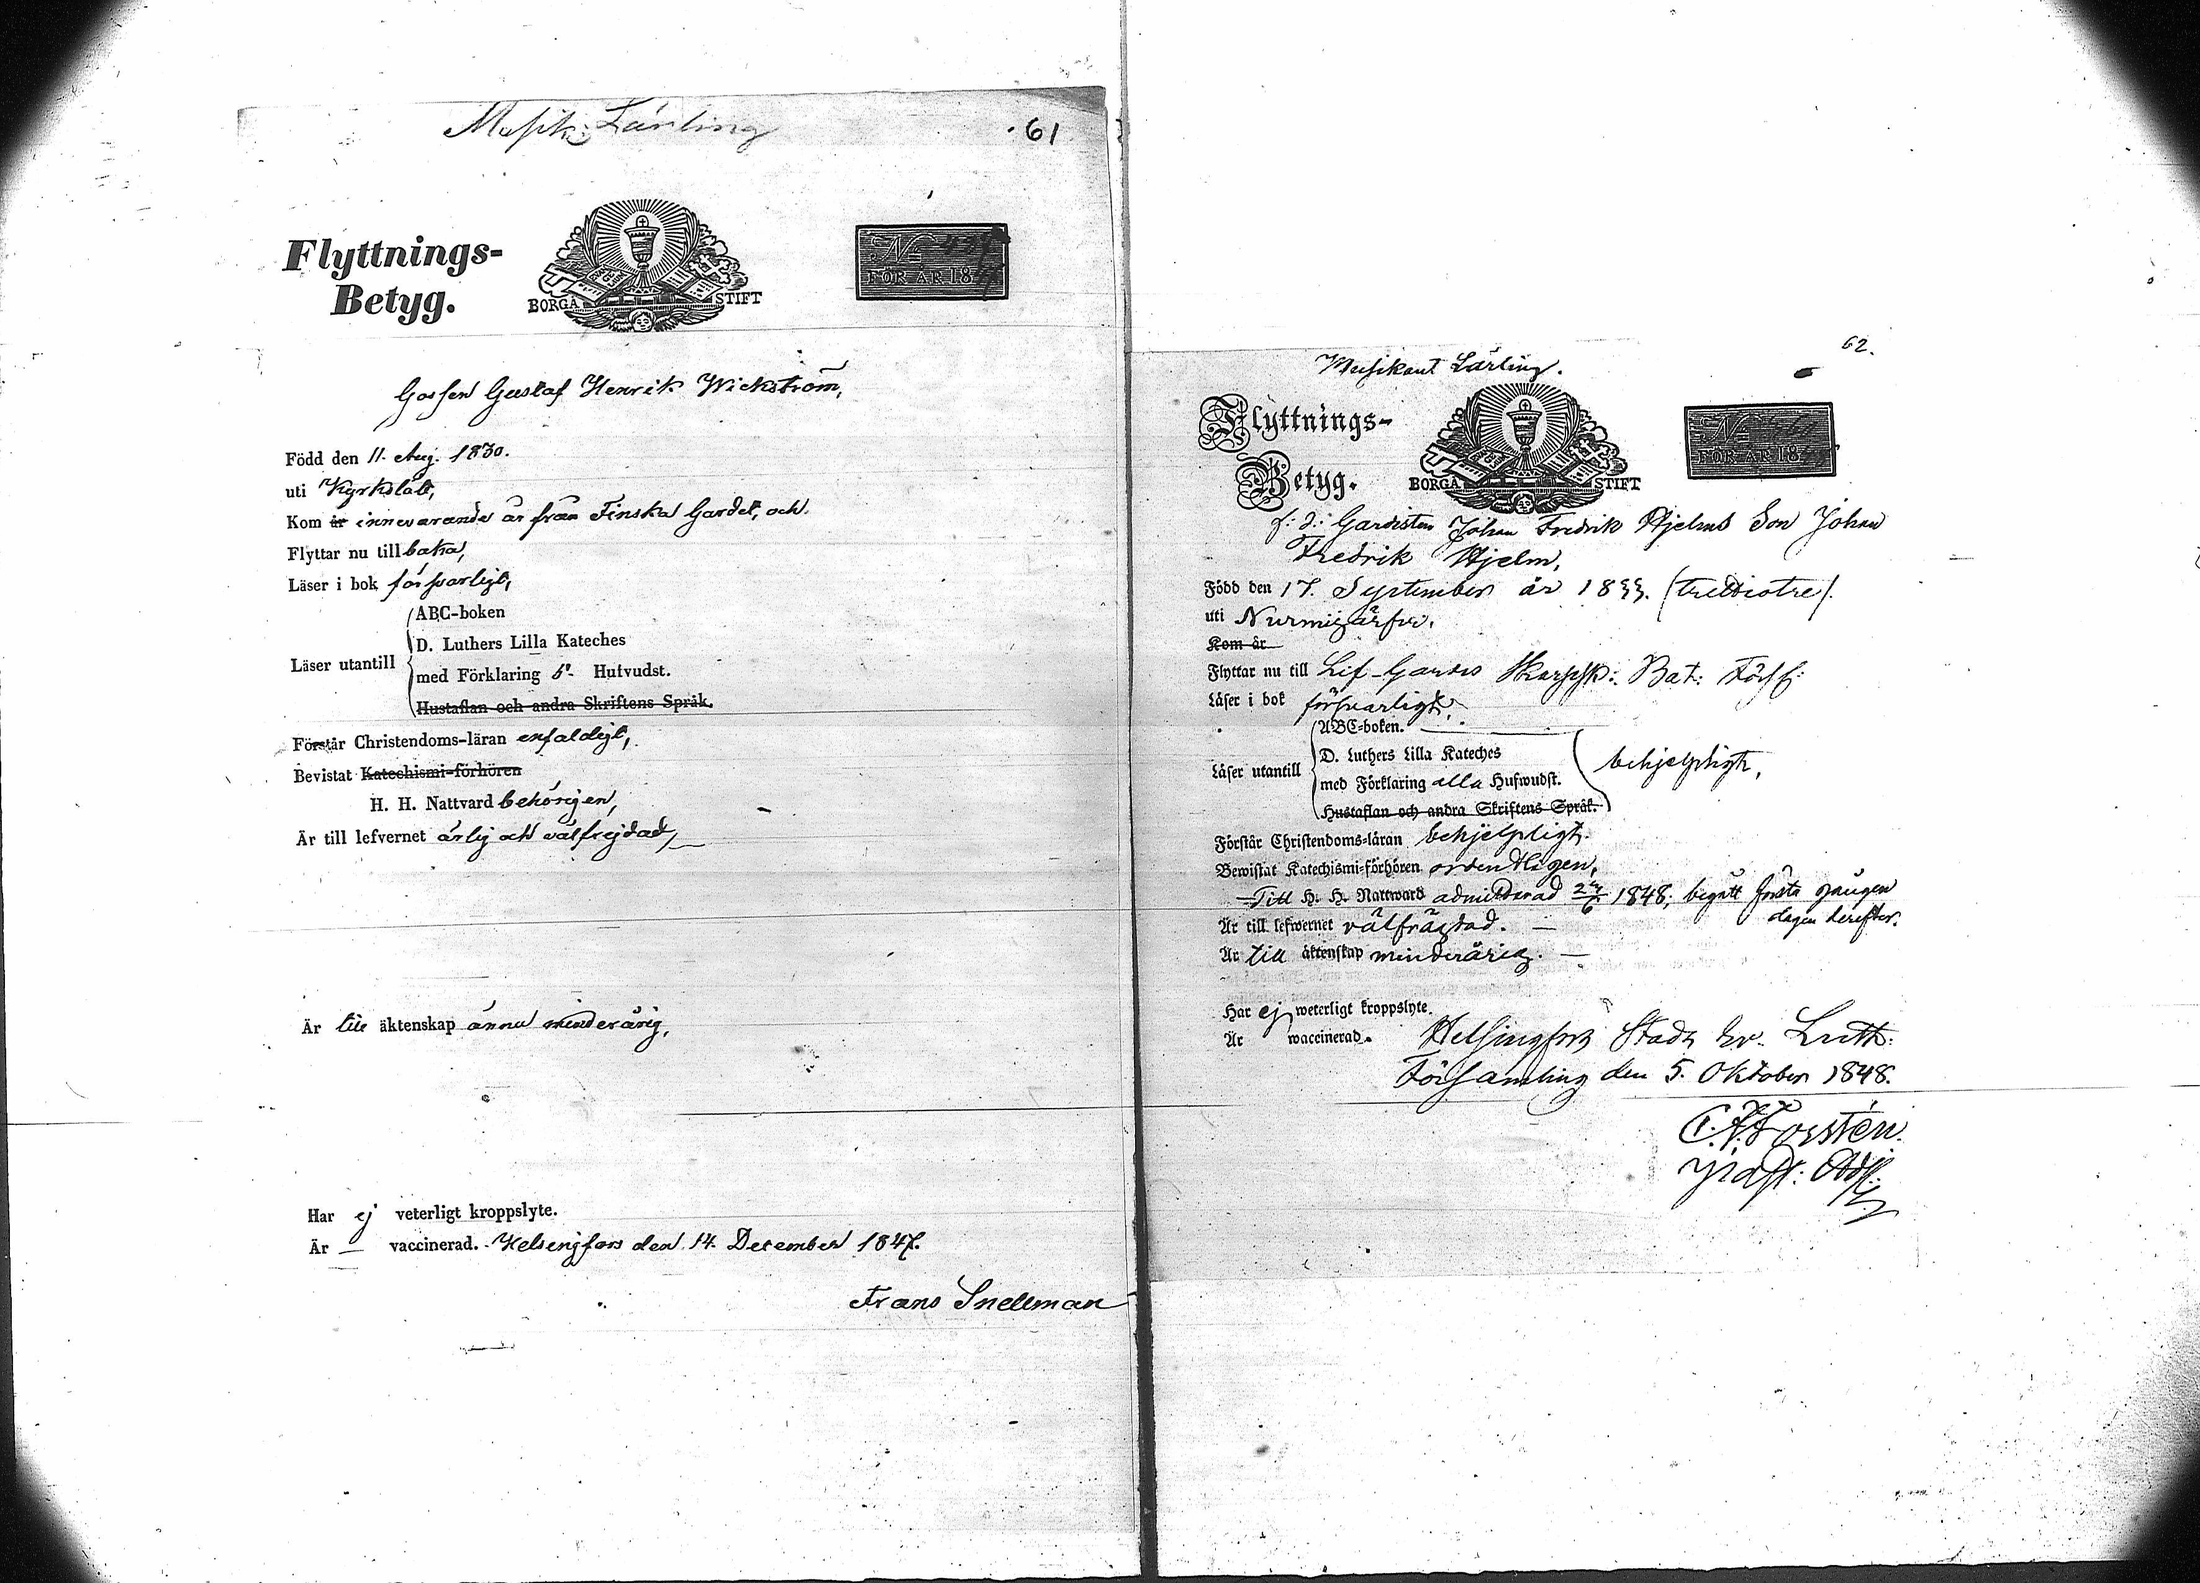 Musik: Lärling
61
Flyttnings-
Betyg.
BORGÅ STIFT
No
FÖR ÅR 18
Gossen Gustaf Henrik Wickström,
Född den 11. Aug. 1830.
uti Kyrkslätt,
Kom år innevarande år från Finska Gardet, och
Flyttar nu till baka,
Läser i bok försvarligt,
ABC-boken
D. Luthers Lilla Kateches
Läser utantill
med Förklaring 5. Hufvudst.
Hustaflan och andra Skriftens Språk.
Förstår Christendoms-läran enfaldigt,
Bevistat Katechismi-förhören
H. H. Nattvard behörigen,
Är till lefvernet ärlig och välfrejdad,
Är till äktenskap ännu minderårig,
Har ej veterligt kroppslyte.
Är — vaccinerad. Helsingfors den 14. December 1847.
Frans Snellman
62.
Musikant Lärling.
Flyttnings-
Betyg.
BORGÅ STIFT
No
FÖR ÅR 18
f: d: Gardisten Johan Fredrik Hjelms Son Johan
Fredrik Hjelm,
Född den 17. September år 1833. (trettiotre).
uti Nurmijärfvi.
Kom år
Flyttar nu till Lif-Gardes Skarpsk: Bat: Förs:
Läser i bok försvarligt.
ABC-boken.
D. Luthers Lilla Kateches
Läser utantill behjelpligt,
med Förklaring alla Hufwudst.
Hustaflan och andra Skriftens Språk.
Förstår Christendoms-läran behjelpligt.
Bewistat Katechismi-förhören ordentligen,
Till H. H. Nattward admitterad 1848; begått första gången
dagen derefter.
Är till lefwernet välfrägdad. —
Är till äktenskap minderårig. —
Har ej weterligt kroppslyte.
Är waccinerad. Helsingfors Stads Ev. Luth:
Församling den 5. Oktober 1848.
C. F. Forstén.